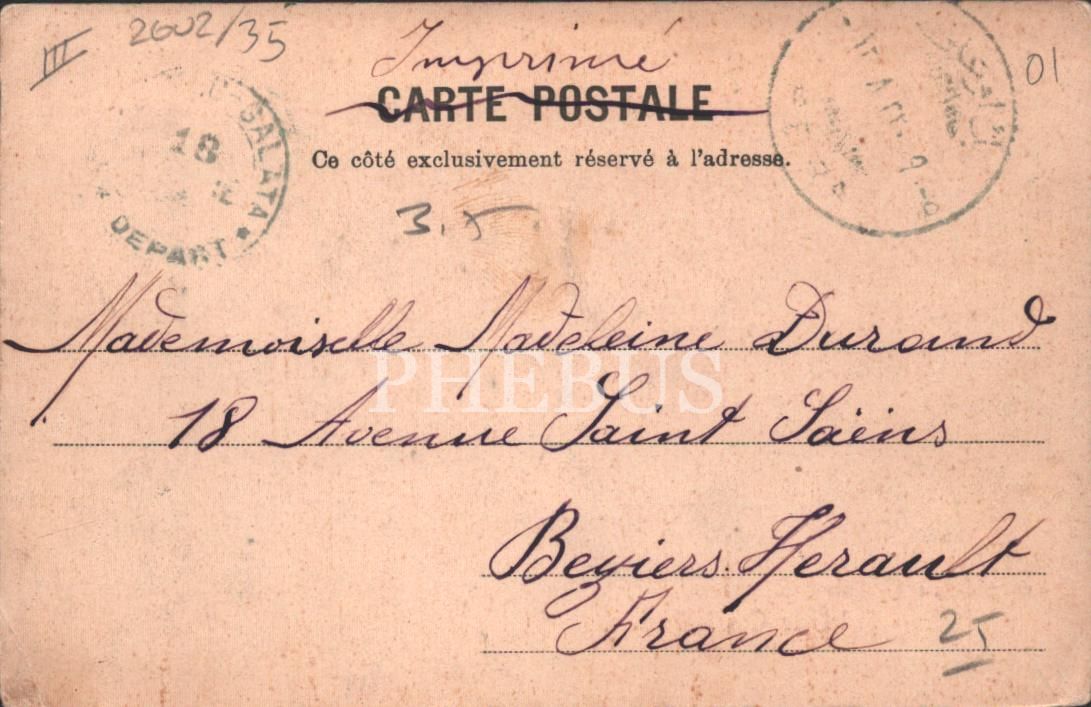 III 2602/35
Imprimé
01
CARTE POSTALE
Ce côté exclusivement réservé à l'adresse.
GALATA
18
DEPART
3.5
Mademoiselle Madeleine Durand
PHEBUS
18 Avenue Saint Saëns
Beziers. Herault
France
25